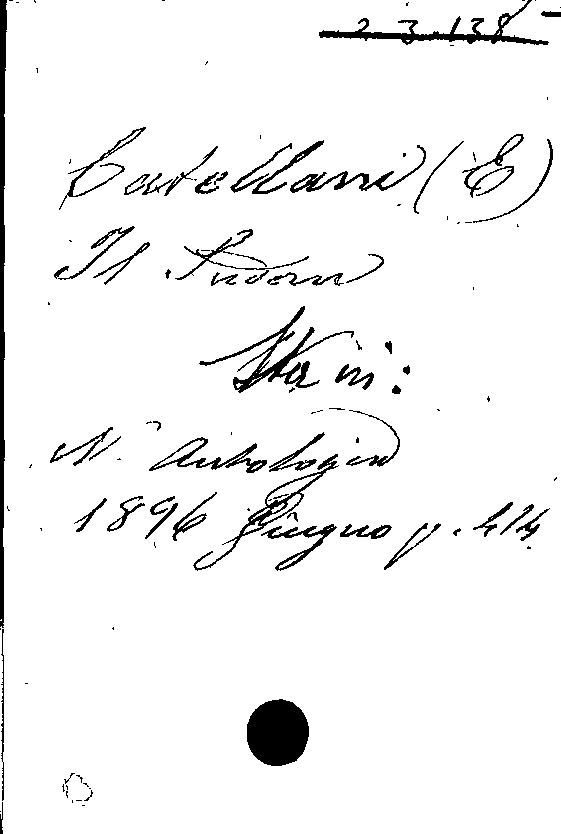 2 3.138
Catellani (E)
Il
Sta in:
N. Antologia
1896 Giugno p. 414